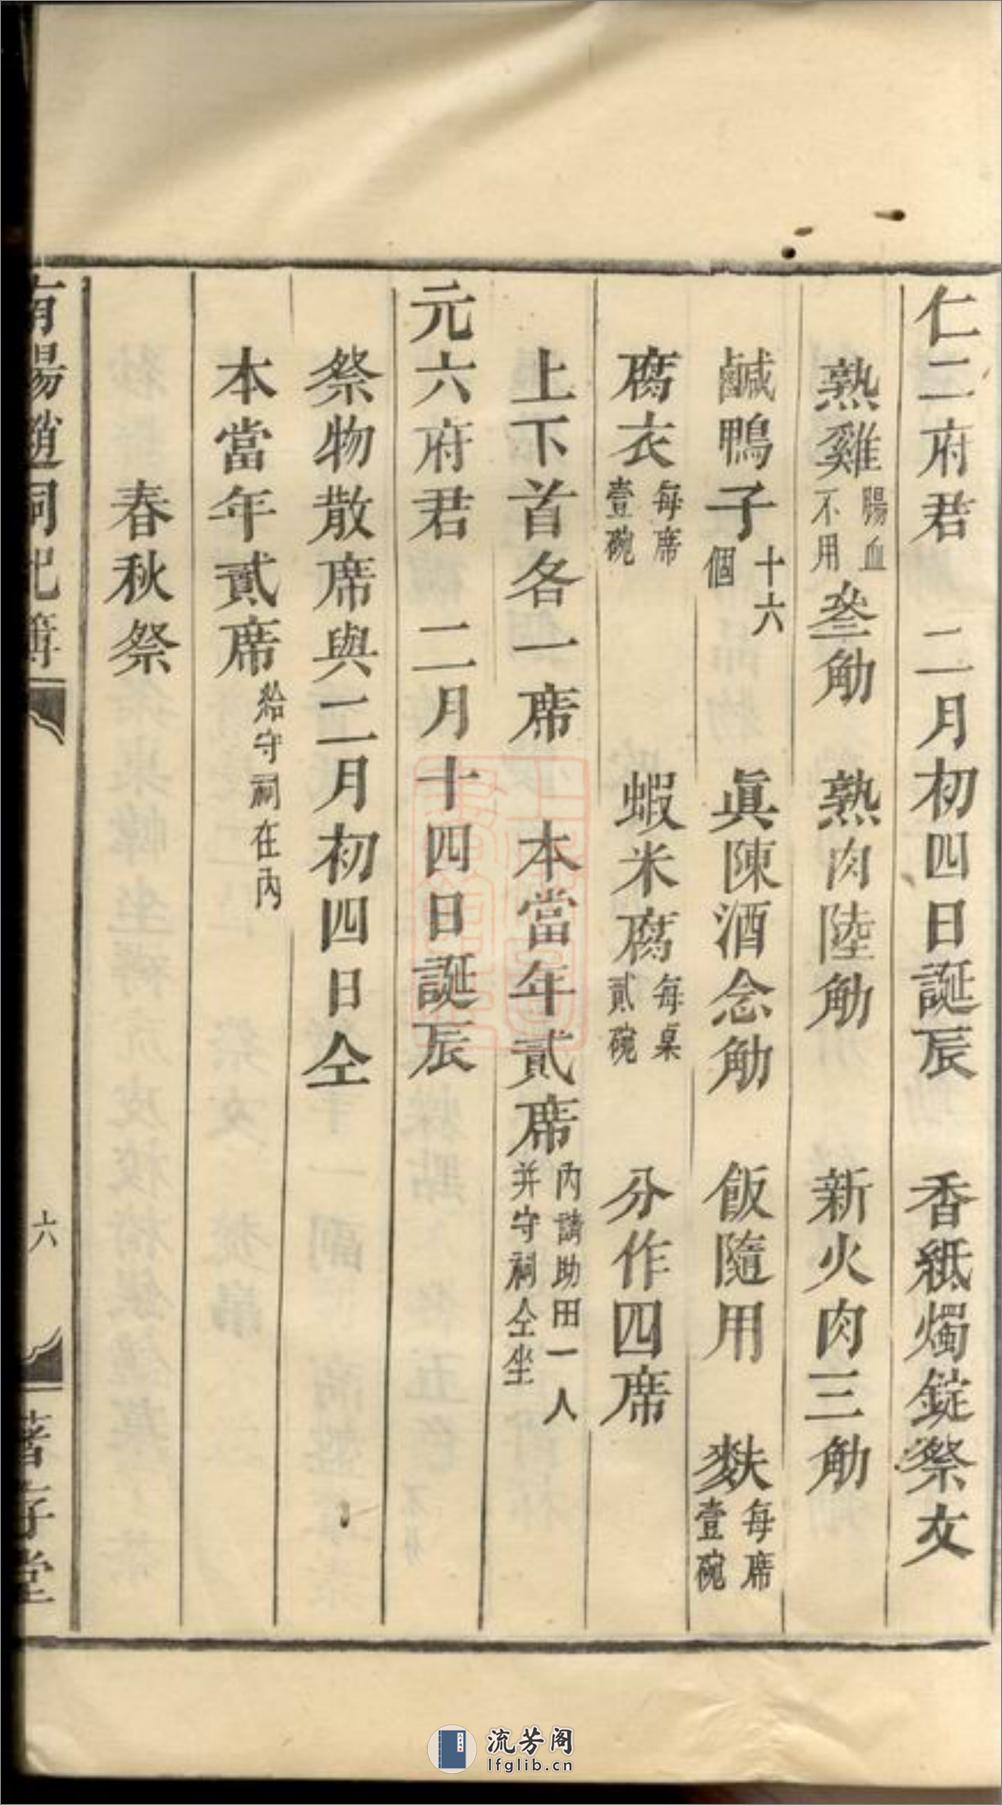 仁二府君　二月初四日誕辰　香紙燭錠祭文
熟雞腸血不用叄觔　熟肉陸觔　新火肉三觔
鹹鴨子十六個　眞陳酒念觔　飯隨用　麩每席壹碗
腐衣每席壹碗　蝦米腐每桌貳碗　分作四席
上下首各一席　本當年貳席內請助田一人并守祠仝坐
元六府君　二月十四日誕辰
祭物散席與二月初四日仝
本當年貳席給守祠在內
春秋祭
陽趙祠祀簿　六　著存堂
流芳阁
lfglib.cn